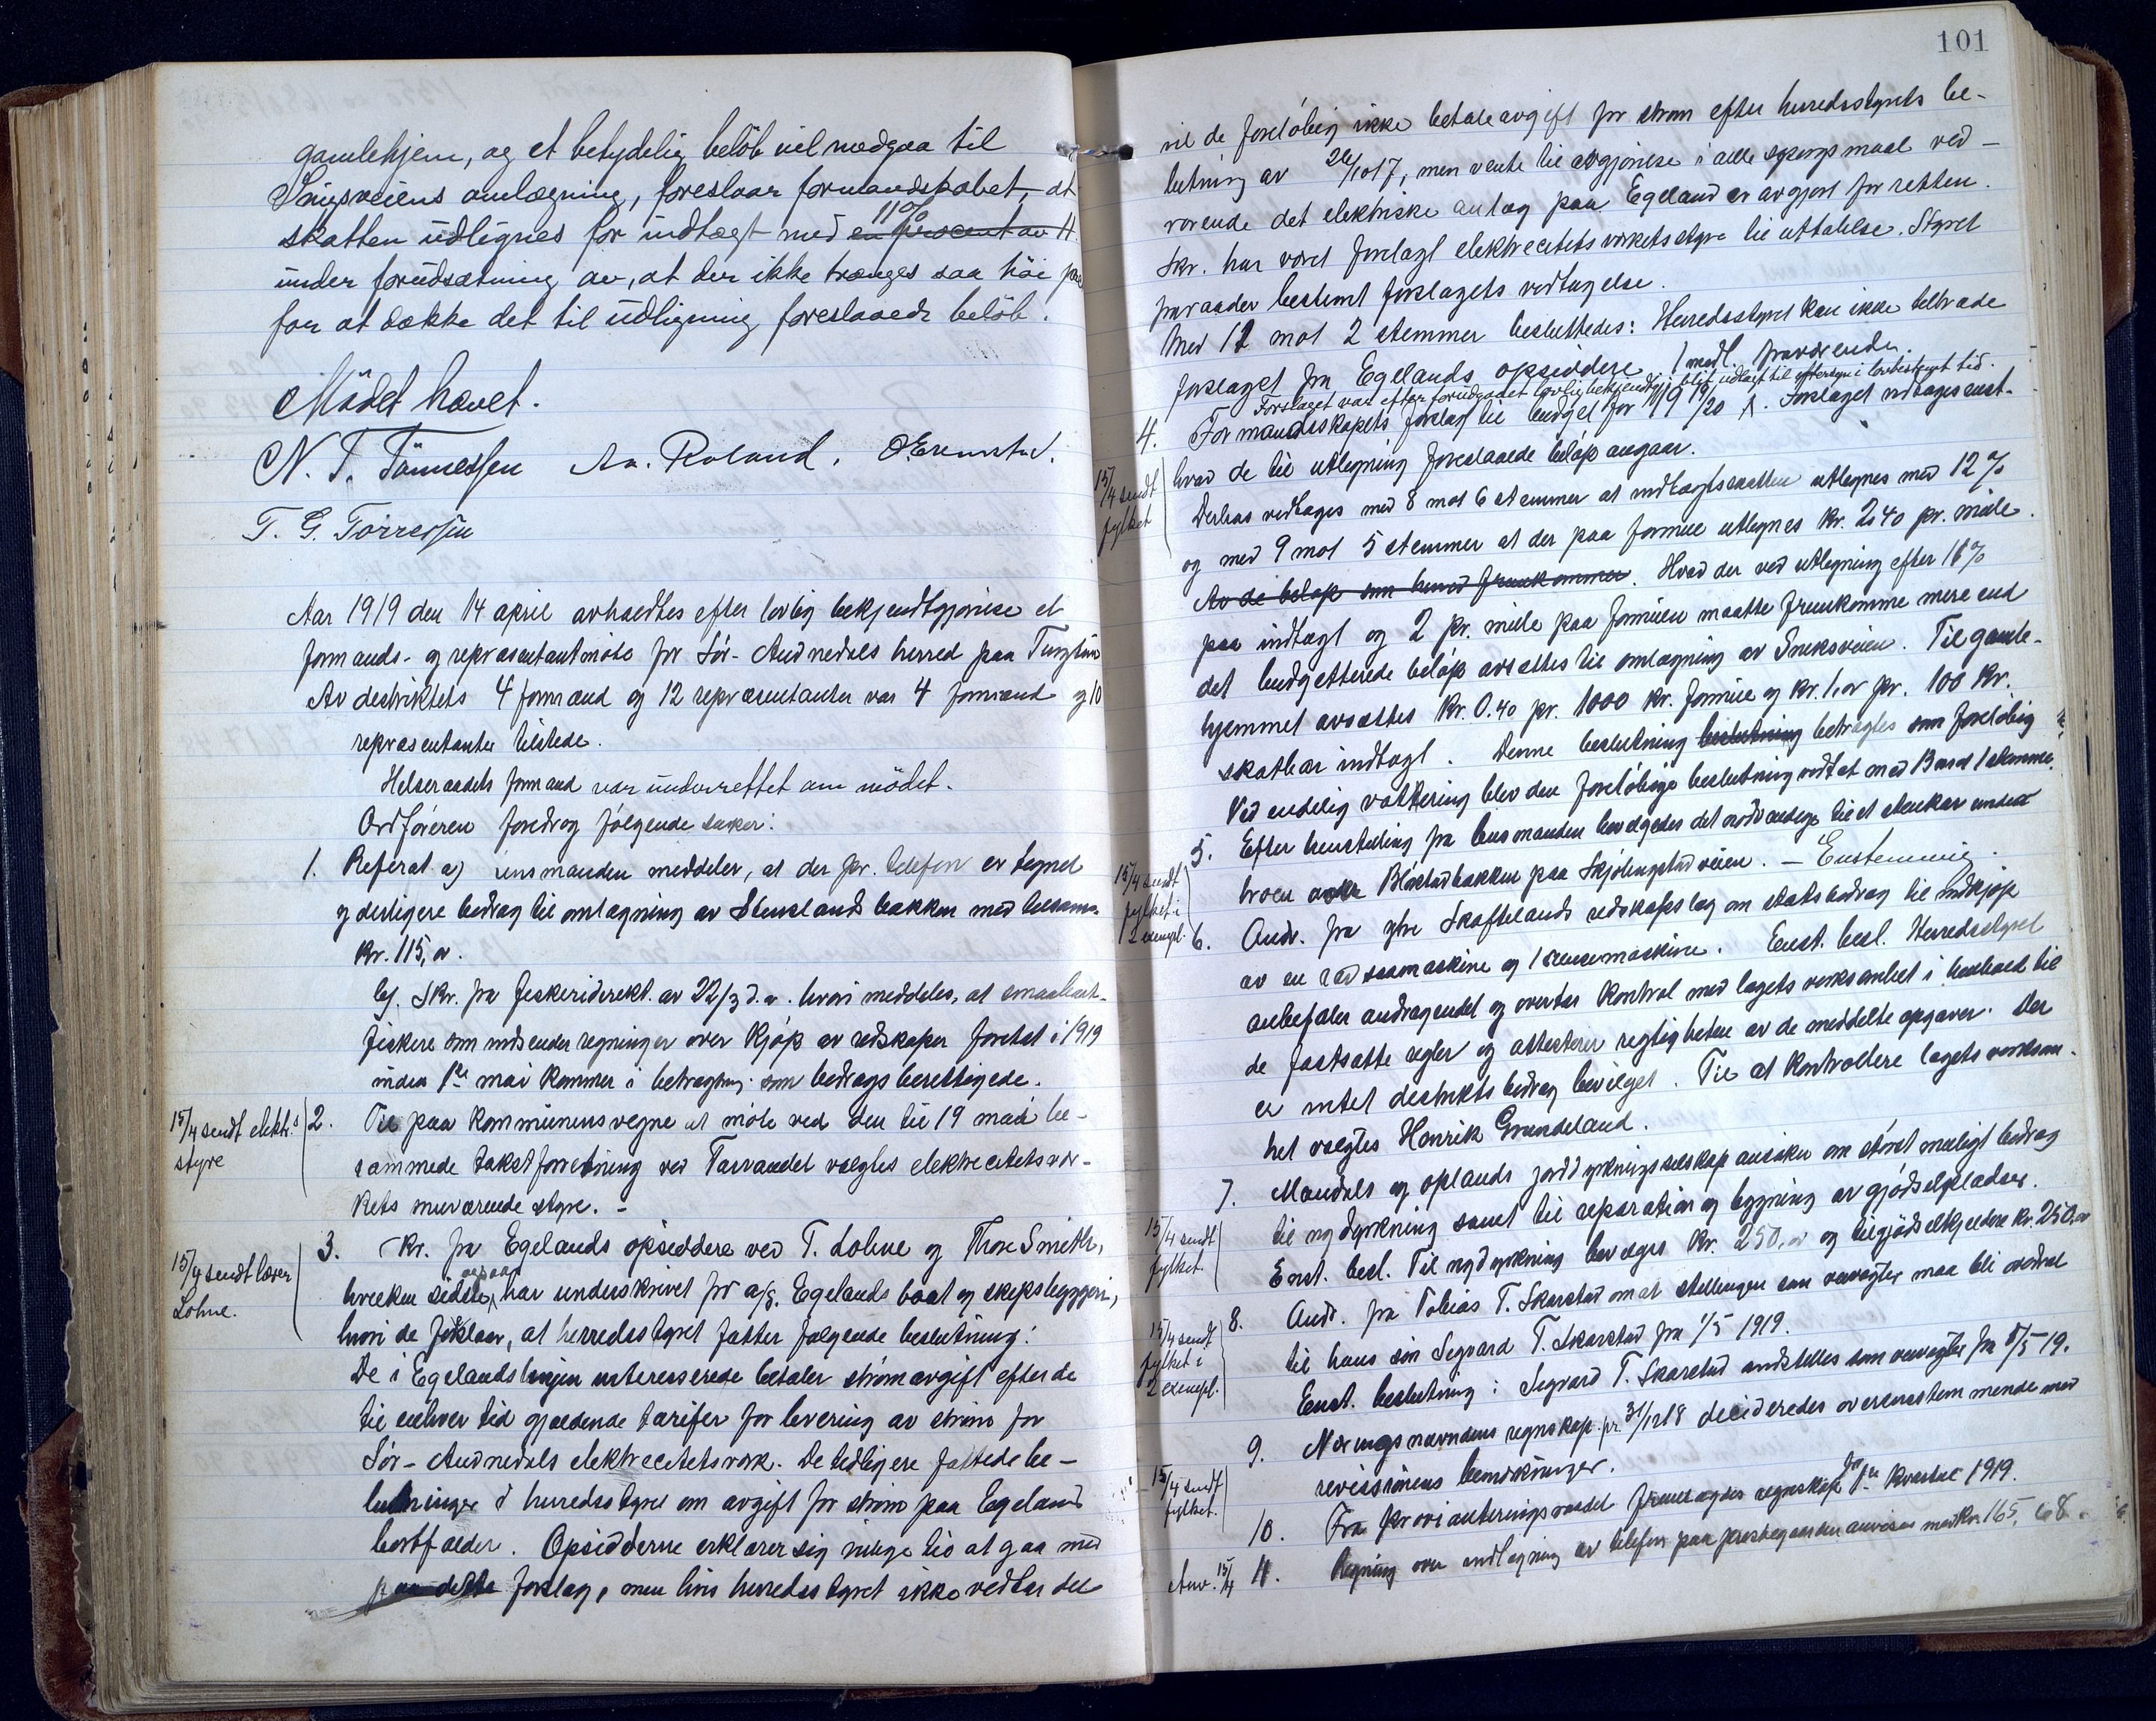 gamlehjem, og et betydelig belöb vil medgaa til
omlægning, foreslaar formandskabet, at
11%
skatten udlignes for indtægt med en procent av
under forudsætning av, at der ikke trænges saa höi
for at dække det til udligning foreslaaede belöb.
Mödet hævet.
N. T. Tönnessen Aa. Roland.
T. G. Torressen
Aar 1919 den 14 april avholdtes efter lovlig bekjendtgjørelse et
formands- og repræsentantmøte for Sør-Audnedals herred paa
Av destriktets 4 formænd og 12 repræsentanter var 4 formænd og 10
repræsentanter tilstede.
Helseraadets formand var underrettet om mödet.
Ordføreren foredrog følgende saker:
1. Referat a) Lensmanden meddeler, at der pr. telefon er tegnet
yderligere bedrag til omlægning av bakken med tilsam.
Kr. 115,00.
b). Skr. fra fiskeridirekt. av 22/3 d.a. hvori meddeles, at
fiskere som indsender regninger over kjøp av redskaper foretat i 1919
inden 1ste mai kommer i betragtning som bedragsberettigede.
15/4 sendt elektr.s
styre
2. Til paa kommunens vegne at møte ved den til 19 mai be-
rammede takstforretning ved Tarvandet valgtes elektrecitetsvær-
kets nuværende styre. -
15/4 sendt lærer
Lohne.
3. Skr. fra Egelands opsiddere ved T. Lohne og Thore Smith,
ogsaa
hvilken sidste har underskrevet for a/s. Egelands baat og skipsbyggeri,
hvori de foreslaar, at herredsstyret fatter følgende beslutning:
De i Egelandslinjen interesserede betaler strømavgift efter de
til enhver tid gjældende tarifer for levering av strøm for
Sør-Audnedals elektrecitetsverk. De tidligere fattede be-
slutninger i herredsstyret om avgift for strøm paa Egeland
bortfalder. Opsidderne erklærer sig villige til at gaa med
paa dette forslag, men hvis herredsstyret ikke vedtar det
101
vil de foreløbig ikke betale avgift for strøm efter herredsstyrets be-
slutning av 26/10 17, men vente til avgjørelse i alle spørgsmaal ved-
rørende det elektriske anlæg paa Egeland er avgjort for retten.
Skr. har været forelagt elektrecitetsverkets styre til uttalelse. Styret
fraraader bestemt forslagets vedtagelse.
Med 12 mot 2 stemmer besluttedes: Herredsstyret kan ikke tiltræde
forslaget fra Egelands opsiddere. 1 medl. fraværende.
Forslaget var efter forudgaaet lovlig bekjendtgj. blit udlagt til eftersyn i lovbestemt tid.
4. Formandsskapets forslag til budget for 1919/20. Forslaget vedtages enst.
15/4 sendt
fylket
hvad de til utligning foreslaaede beløp angaar.
Derhos vedtages med 8 mot 6 stemmer at indtægtsskatten utlignes med 12%
og med 9 mot 5 stemmer at der paa formue utlignes kr. 2,40 pr. mille.
Av de beløp som herved fremkommer. Hvad der ved utligning efter 11%
paa indtægt og 2 pr. mille paa formuen maatte fremkomme mere end
det budgetterede beløp avsættes til omlægning av. Til gamle-
hjemmet avsættes Kr. 0.40 pr. 1000 kr. formue og kr. 1,00 pr. 100 kr.
skatbar indtægt. Denne beslutning beslutning betragtes som foreløbig
Ved endelig vottering blev den foreløbige beslutning vedtat med 13 mot 1 stemme.
5. Efter henstilling fra lensmanden bevilgedes det nødvendige til et stenkar under
15/4 sendt
fylket i
2 exempl.
broen Blørstadbakken paa Skjølingstadveien. - Enstemmig.
6. Andr. fra ytre Skoftelands redskapslag om statsbedrag til indkjøp
av en radsaamaskine og 1 rensemaskine. Enst. besl. Herredsstyret
anbefaler andragendet og overtar kontrol med lagets verksomhet i henhold til
de fastsatte regler og attesterer rigtigheten av de meddelte opgaver. Der
er intet destriktsbidrag bevilget. Til at kontrollere lagets verksom-
het valgtes Henrik Grundeland.
7. Mandals og oplands jorddyrkningsselskap ansøker om størst muligt bedrag
15/4 sendt
fylket
til nydyrkning samt til reparation og bygning av gjødselpladser.
Enst. besl. Til nydyrkning bevilges Kr. 250,00 og til gjødselkjeldere kr. 250,00
15/4 sendt
fylket i
2 exempl.
8. Andr. fra Tobias T. Skarstad om at stellingen som veivogter maa bli overdrat
til hans søn Segvard T. Skarstad fra 1/5 1919.
Enst. beslutning: Segvard T. Skarstad indstilles som veivogter fra 1/5 19.
9. Næringsnævndens regnskap pr. 31/12 18 decideredes overensstemmende med
15/4 sendt
fylket.
revisorens bemerkninger.
10. Fra provianteringsraadet fremlagdes regnskap for 1ste kvartal 1919.
Anv. 15/4 11. Regning over indlægning av telefon paa prestegaarden anvises med kr. 165,68.